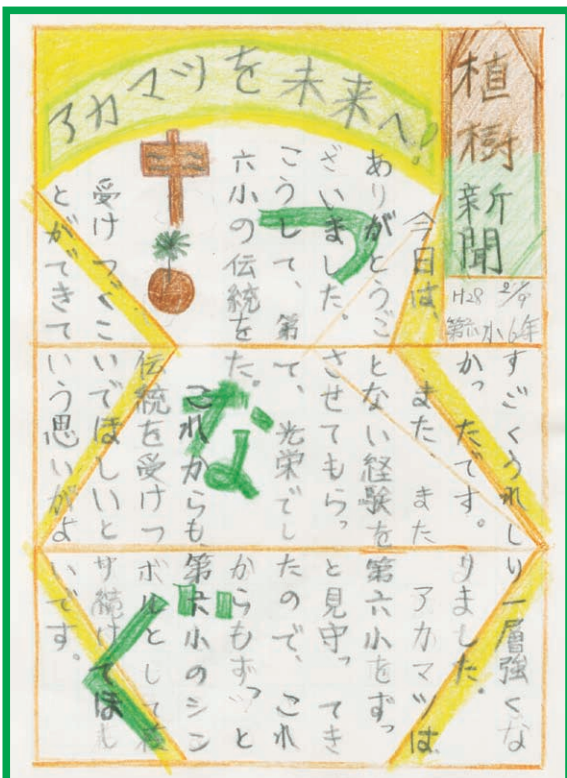 植樹新聞
H28 2/9
第六小6年
アカマツを未来へ!
つなぐ
今日は、
ありがとうご
ざいました。
こうして、第
六小の伝統を
受けつぐこ
とができて
すごくうれし
かったです。
また、また
とない経験を
させてもらっ
て、光栄でし
た。
これからも、
伝統を受けつ
いでほしいと
いう思いがよ
り一層強くな
りました。
アカマツは、
第六小をずっ
と見守ってき
たので、これ
からもずっと
第六小のシン
ボルとして
り続けてほし
いです。